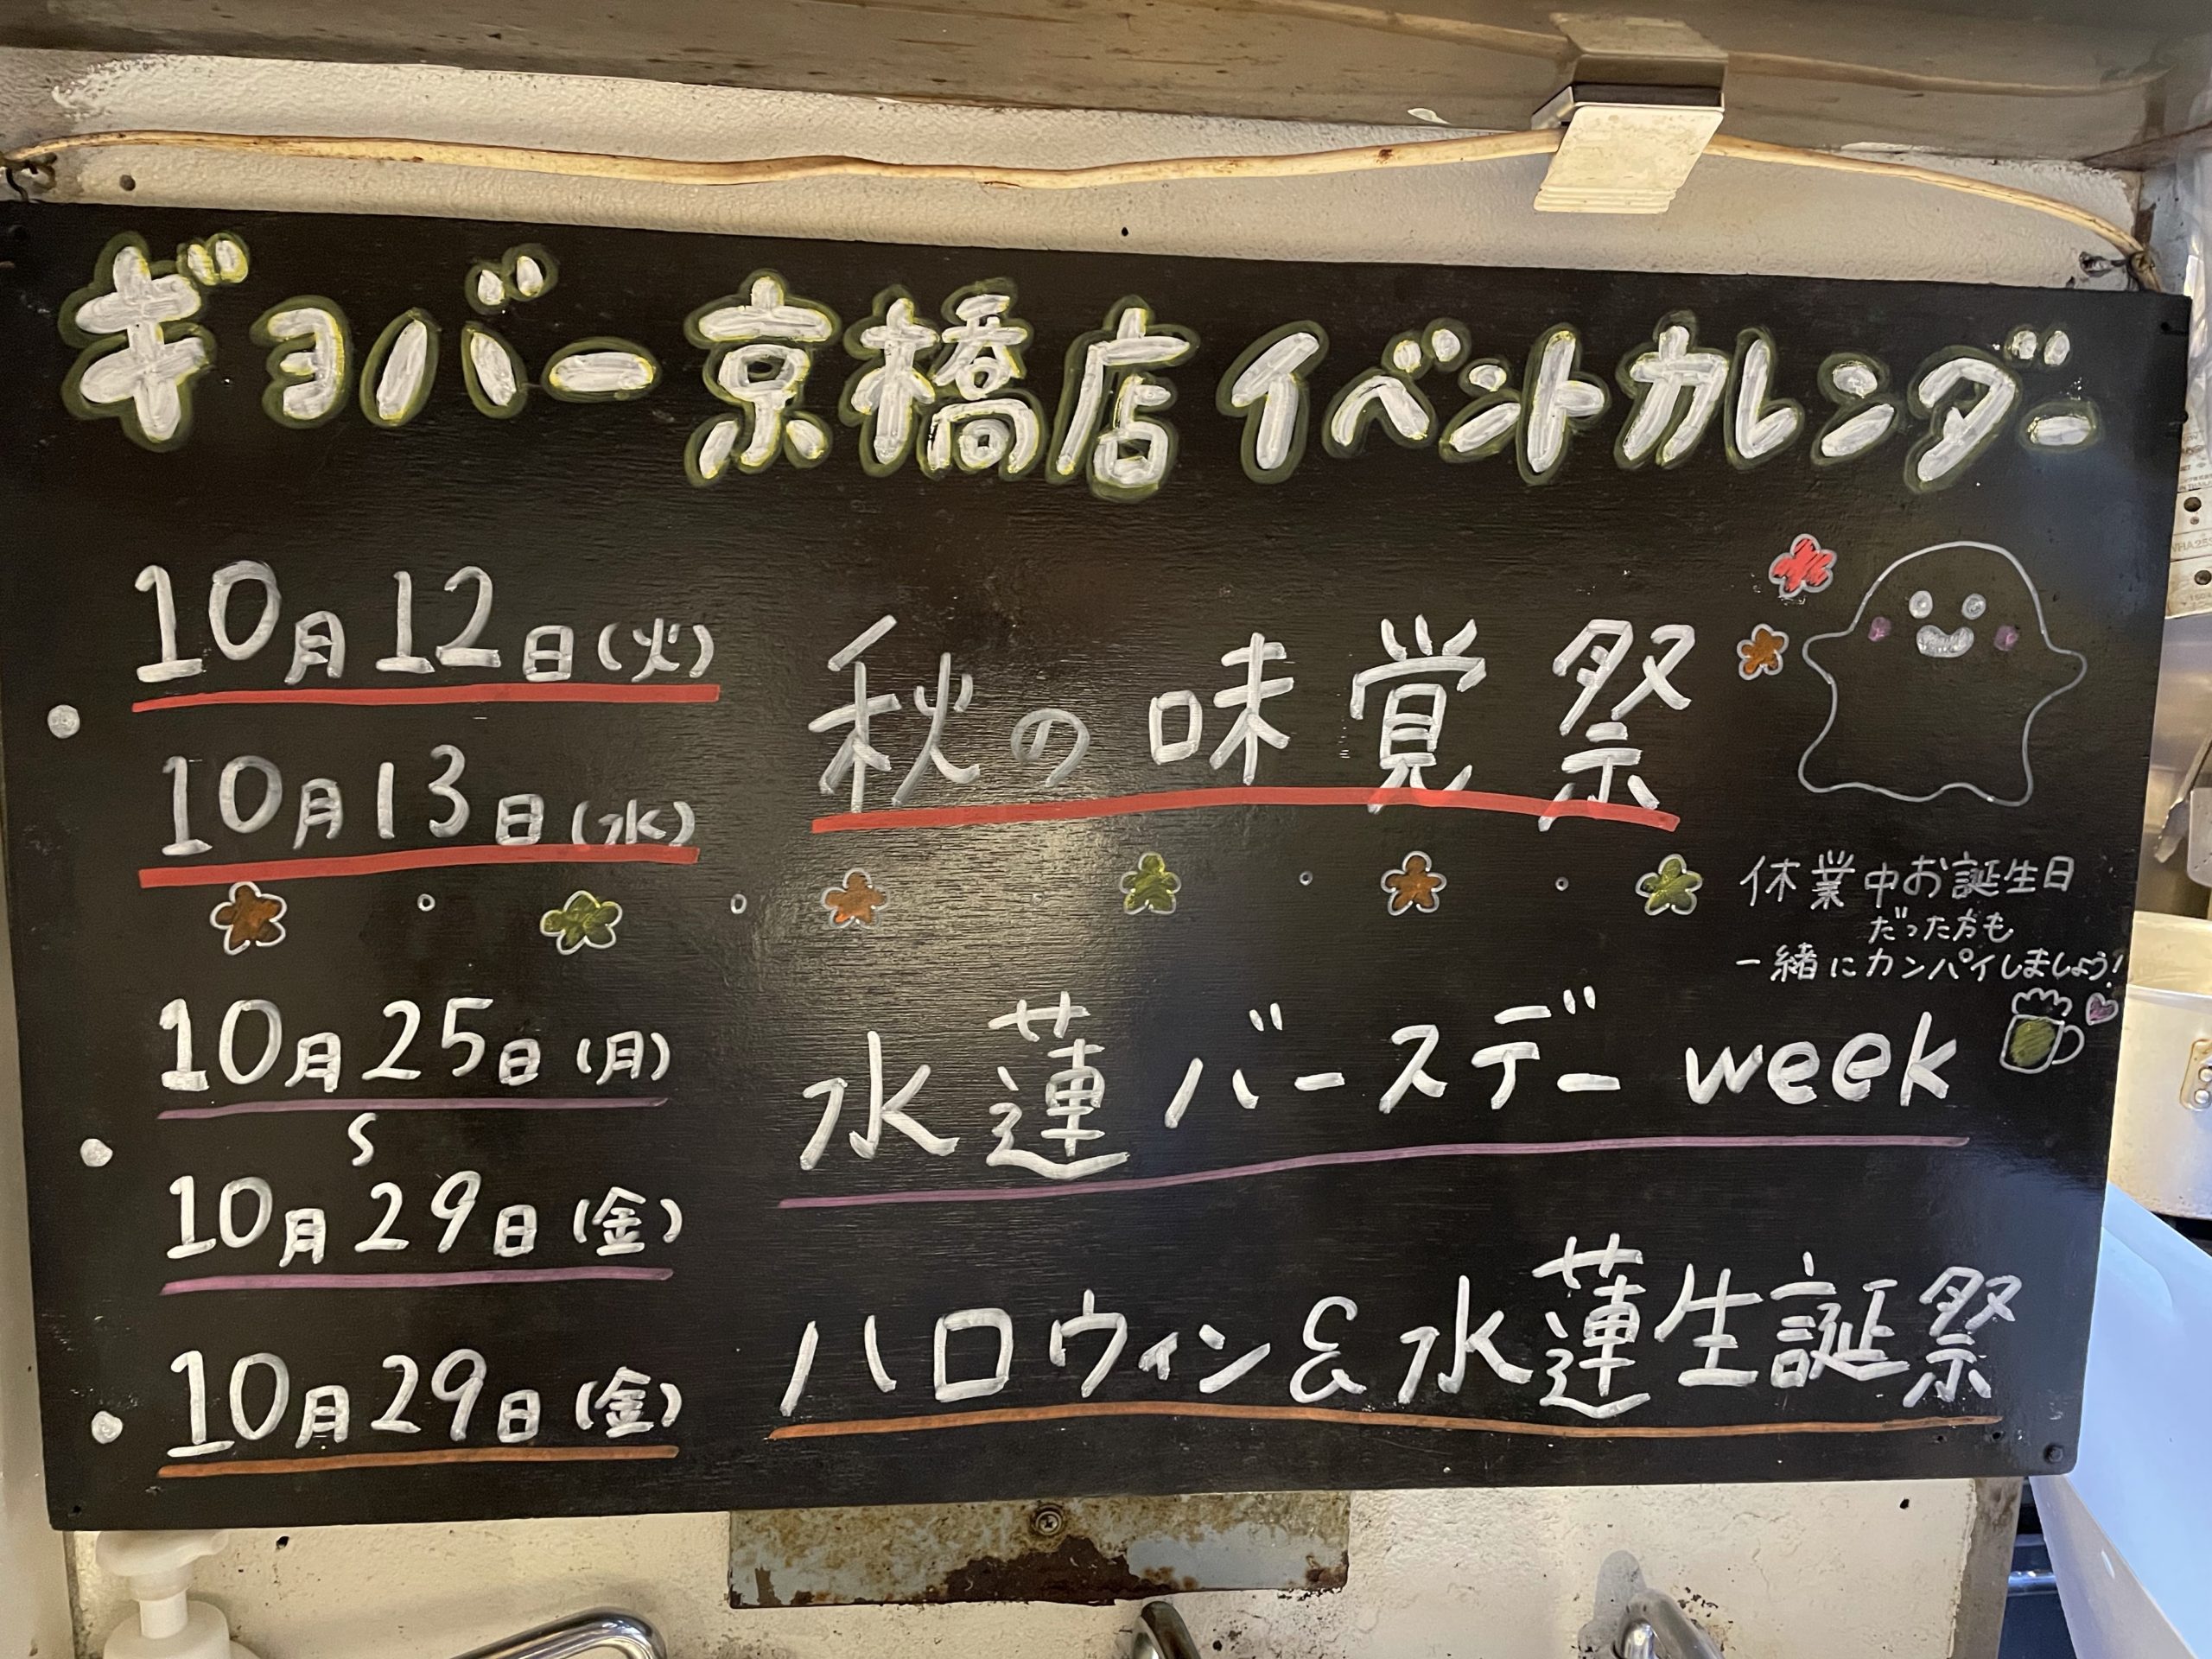 ギョバー京橋店 イベントカレンダー
10月12日(火)
10月13日(水)
秋の味覚祭
休業中お誕生日
だった方も
一緒にカンパイしましょう!
10月25日(月)
S
10月29日(金)
水蓮バースデーweek
10月29日(金)
ハロウィン&水蓮生誕祭